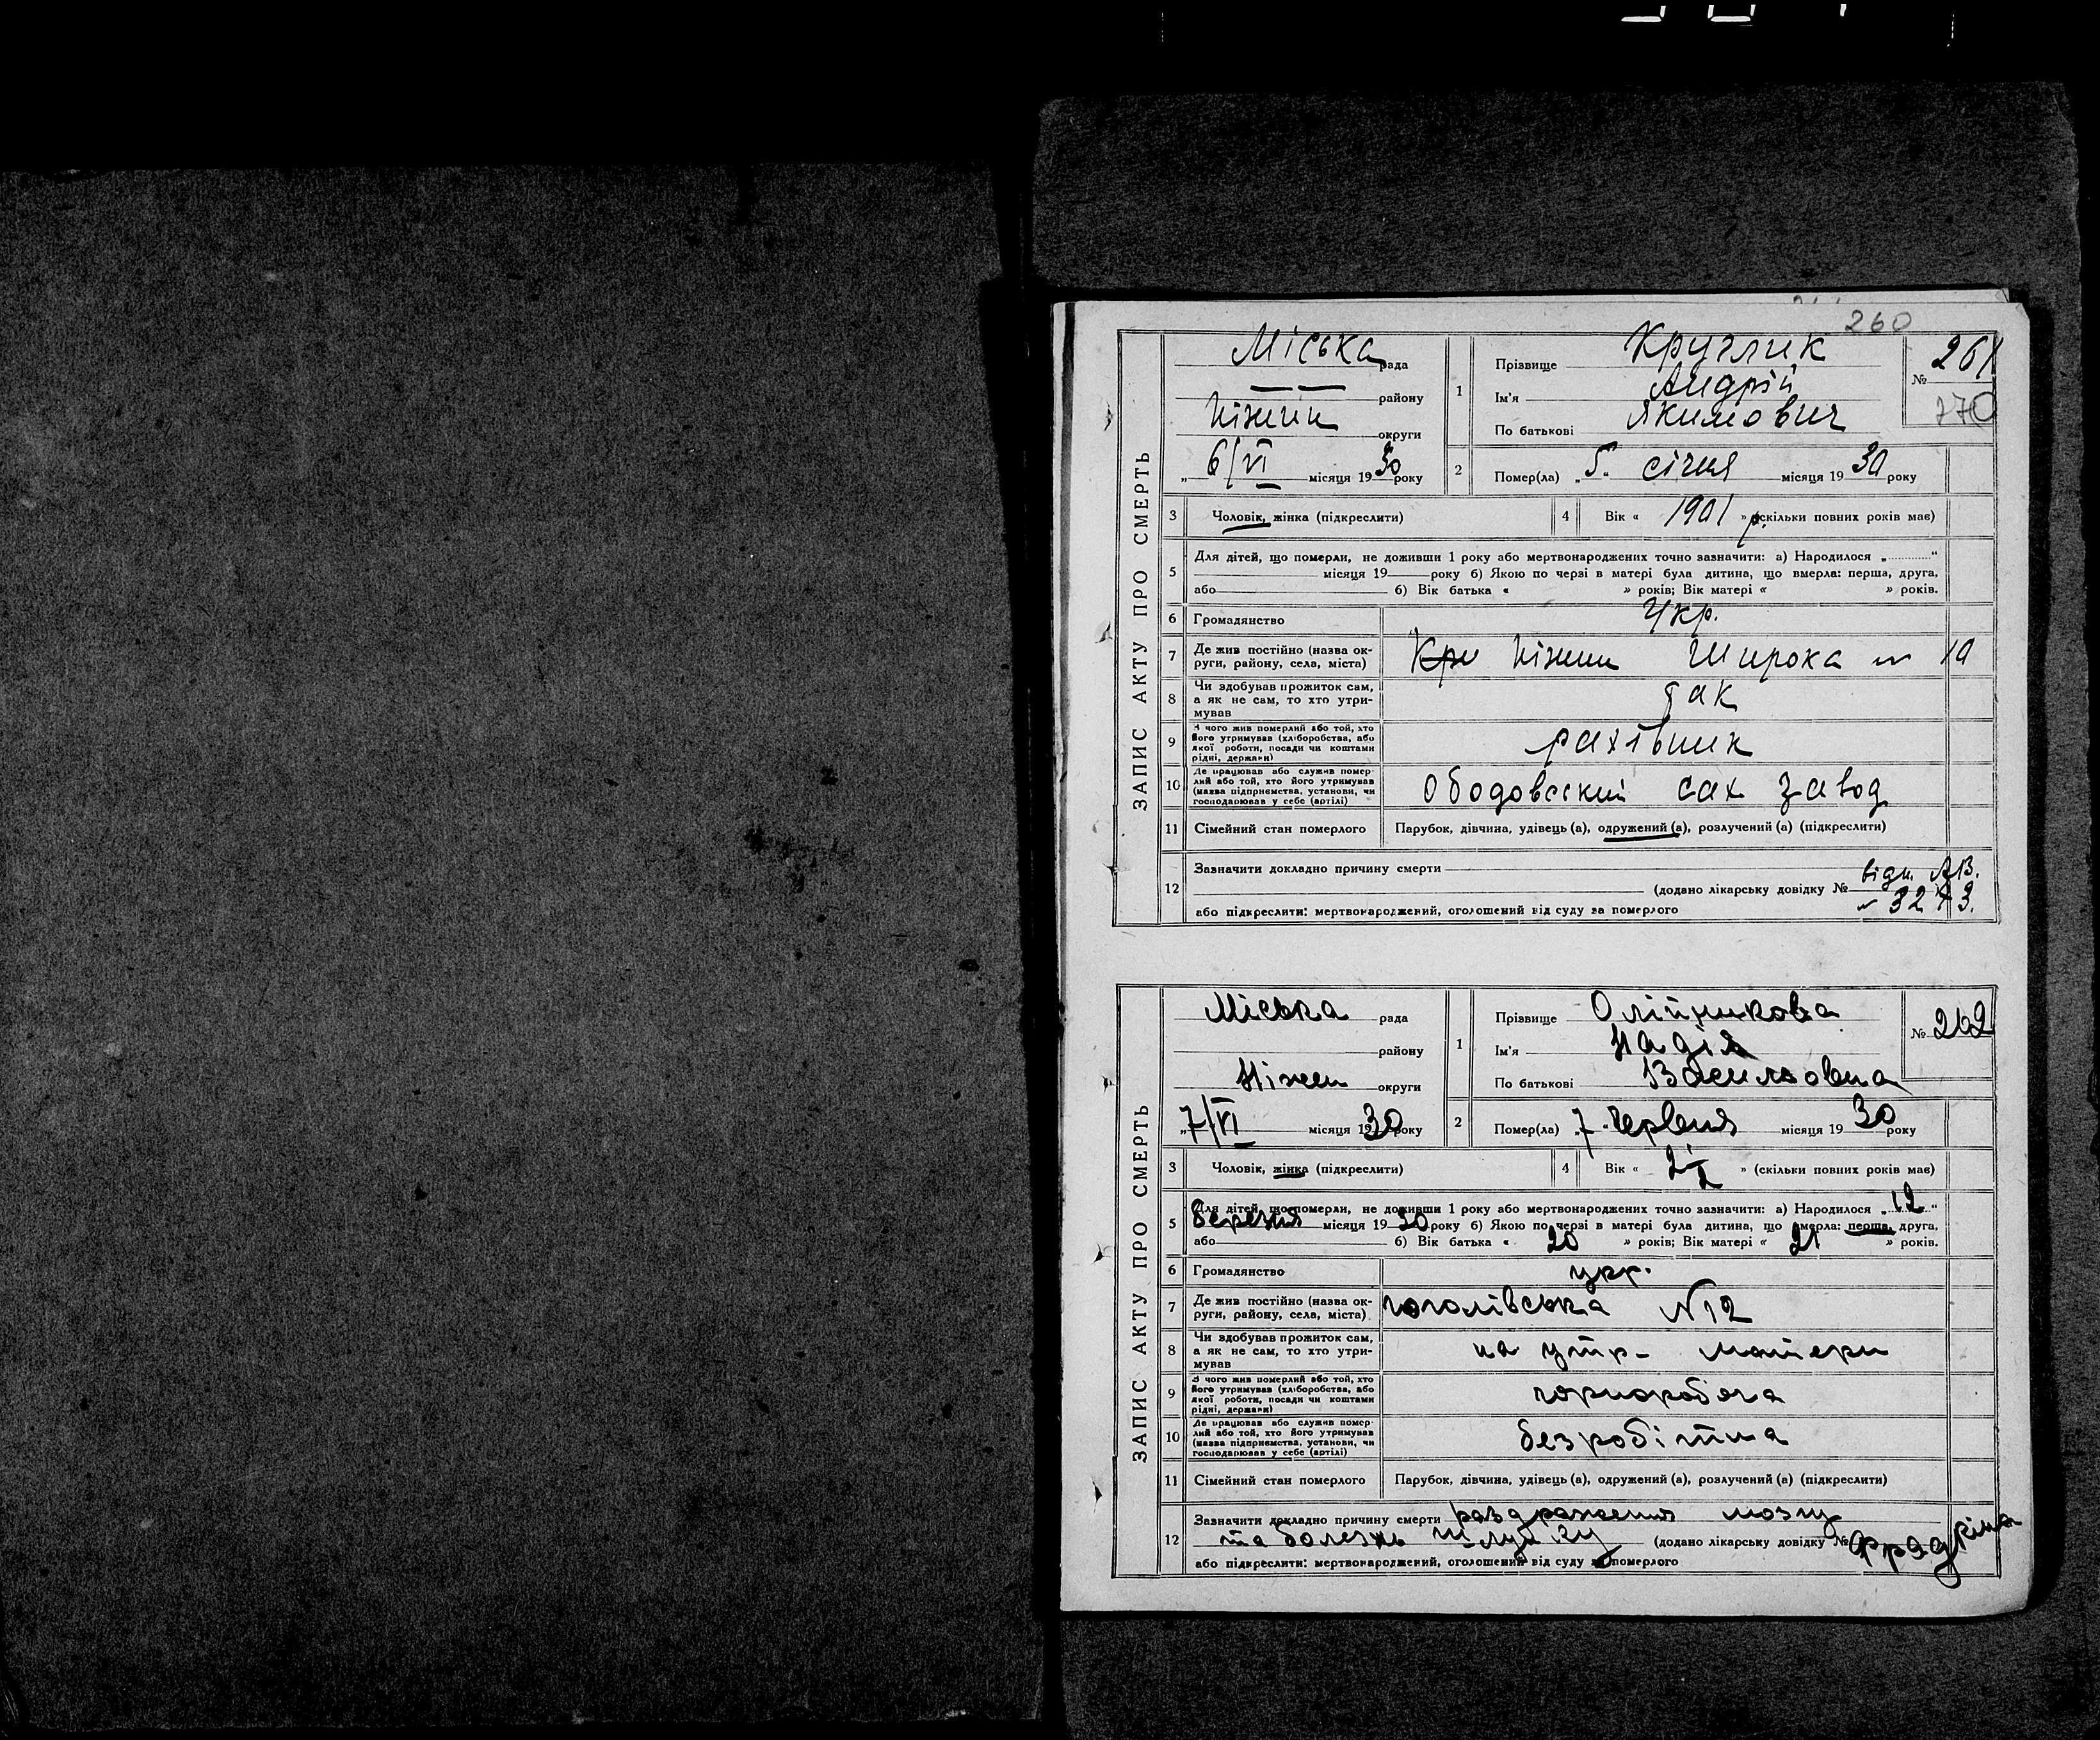 260
ЗАПИС АКТУ ПРО СМЕРТЬ
Міська рада
району
Ніжин округи
„ 6/VI місяця 1930 року
1 Прізвище Круглик
Ім'я Андрій
По батькові Якимович
№ 261
770
2 Помер(ла) „5" січня місяця 1930 року
3 Чоловік, жінка (підкреслити)
4 Вік « 1901 р. » (скільки повних років має)
5 Для дітей, що померли, не доживши 1 року або мертвонароджених точно зазначити: а) Народилося „ “
місяця 19 року б) Якою по черзі в матері була дитина, що вмерла: перша, друга,
або б) Вік батька « » років; Вік матері « » років.
6 Громадянство Укр.
7 Де жив постійно (назва округи, району, села, міста) Кри Ніжин Широка № 10
8 Чи здобував прожиток сам, а як не сам, то хто утримував так
9 З чого жив померлий або той, хто його утримував (хліборобства, або якої роботи, посади чи коштами рідні, держави) рахівник
10 Де працював або служив померлий або той, хто його утримував (назва підприємства, установи, чи господарював у себе (артілі) Ободовський сах завод
11 Сімейний стан померлого Парубок, дівчина, удівець (а), одружений (а), розлучений (а) (підкреслити)
12 Зазначити докладно причину смерти
(додано лікарську довідку № відн.
або підкреслити: мертвонароджений, оголошений від суду за померлого
ЗАПИС АКТУ ПРО СМЕРТЬ
Міська рада
району
Ніжин округи
„7/VI місяця 1930 року
1 Прізвище Олійникова
Ім'я Надія
По батькові Васильовна
№ 262
2 Помер(ла) „7" червня місяця 1930 року
3 Чоловік, жінка (підкреслити)
4 Вік « » (скільки повних років має)
5 Для дітей, що померли, не доживши 1 року або мертвонароджених точно зазначити: а) Народилося „12“
березня місяця 1930 року б) Якою по черзі в матері була дитина, що вмерла: перша, друга,
або б) Вік батька « 20 » років; Вік матері « 21 » років.
6 Громадянство укр.
7 Де жив постійно (назва округи, району, села, міста) гоголівська № 12
8 Чи здобував прожиток сам, а як не сам, то хто утримував на утр- матери
9 З чого жив померлий або той, хто його утримував (хліборобства, або якої роботи, посади чи коштами рідні, держави) чорнороб
10 Де працював або служив померлий або той, хто його утримував (назва підприємства, установи, чи господарював у себе (артілі) безробітна
11 Сімейний стан померлого Парубок, дівчина, удівець (а), одружений (а), розлучений (а) (підкреслити)
12 Зазначити докладно причину смерти раздраження мозгу
та болезнь (додано лікарську довідку №
або підкреслити: мертвонароджений, оголошений від суду за померлого